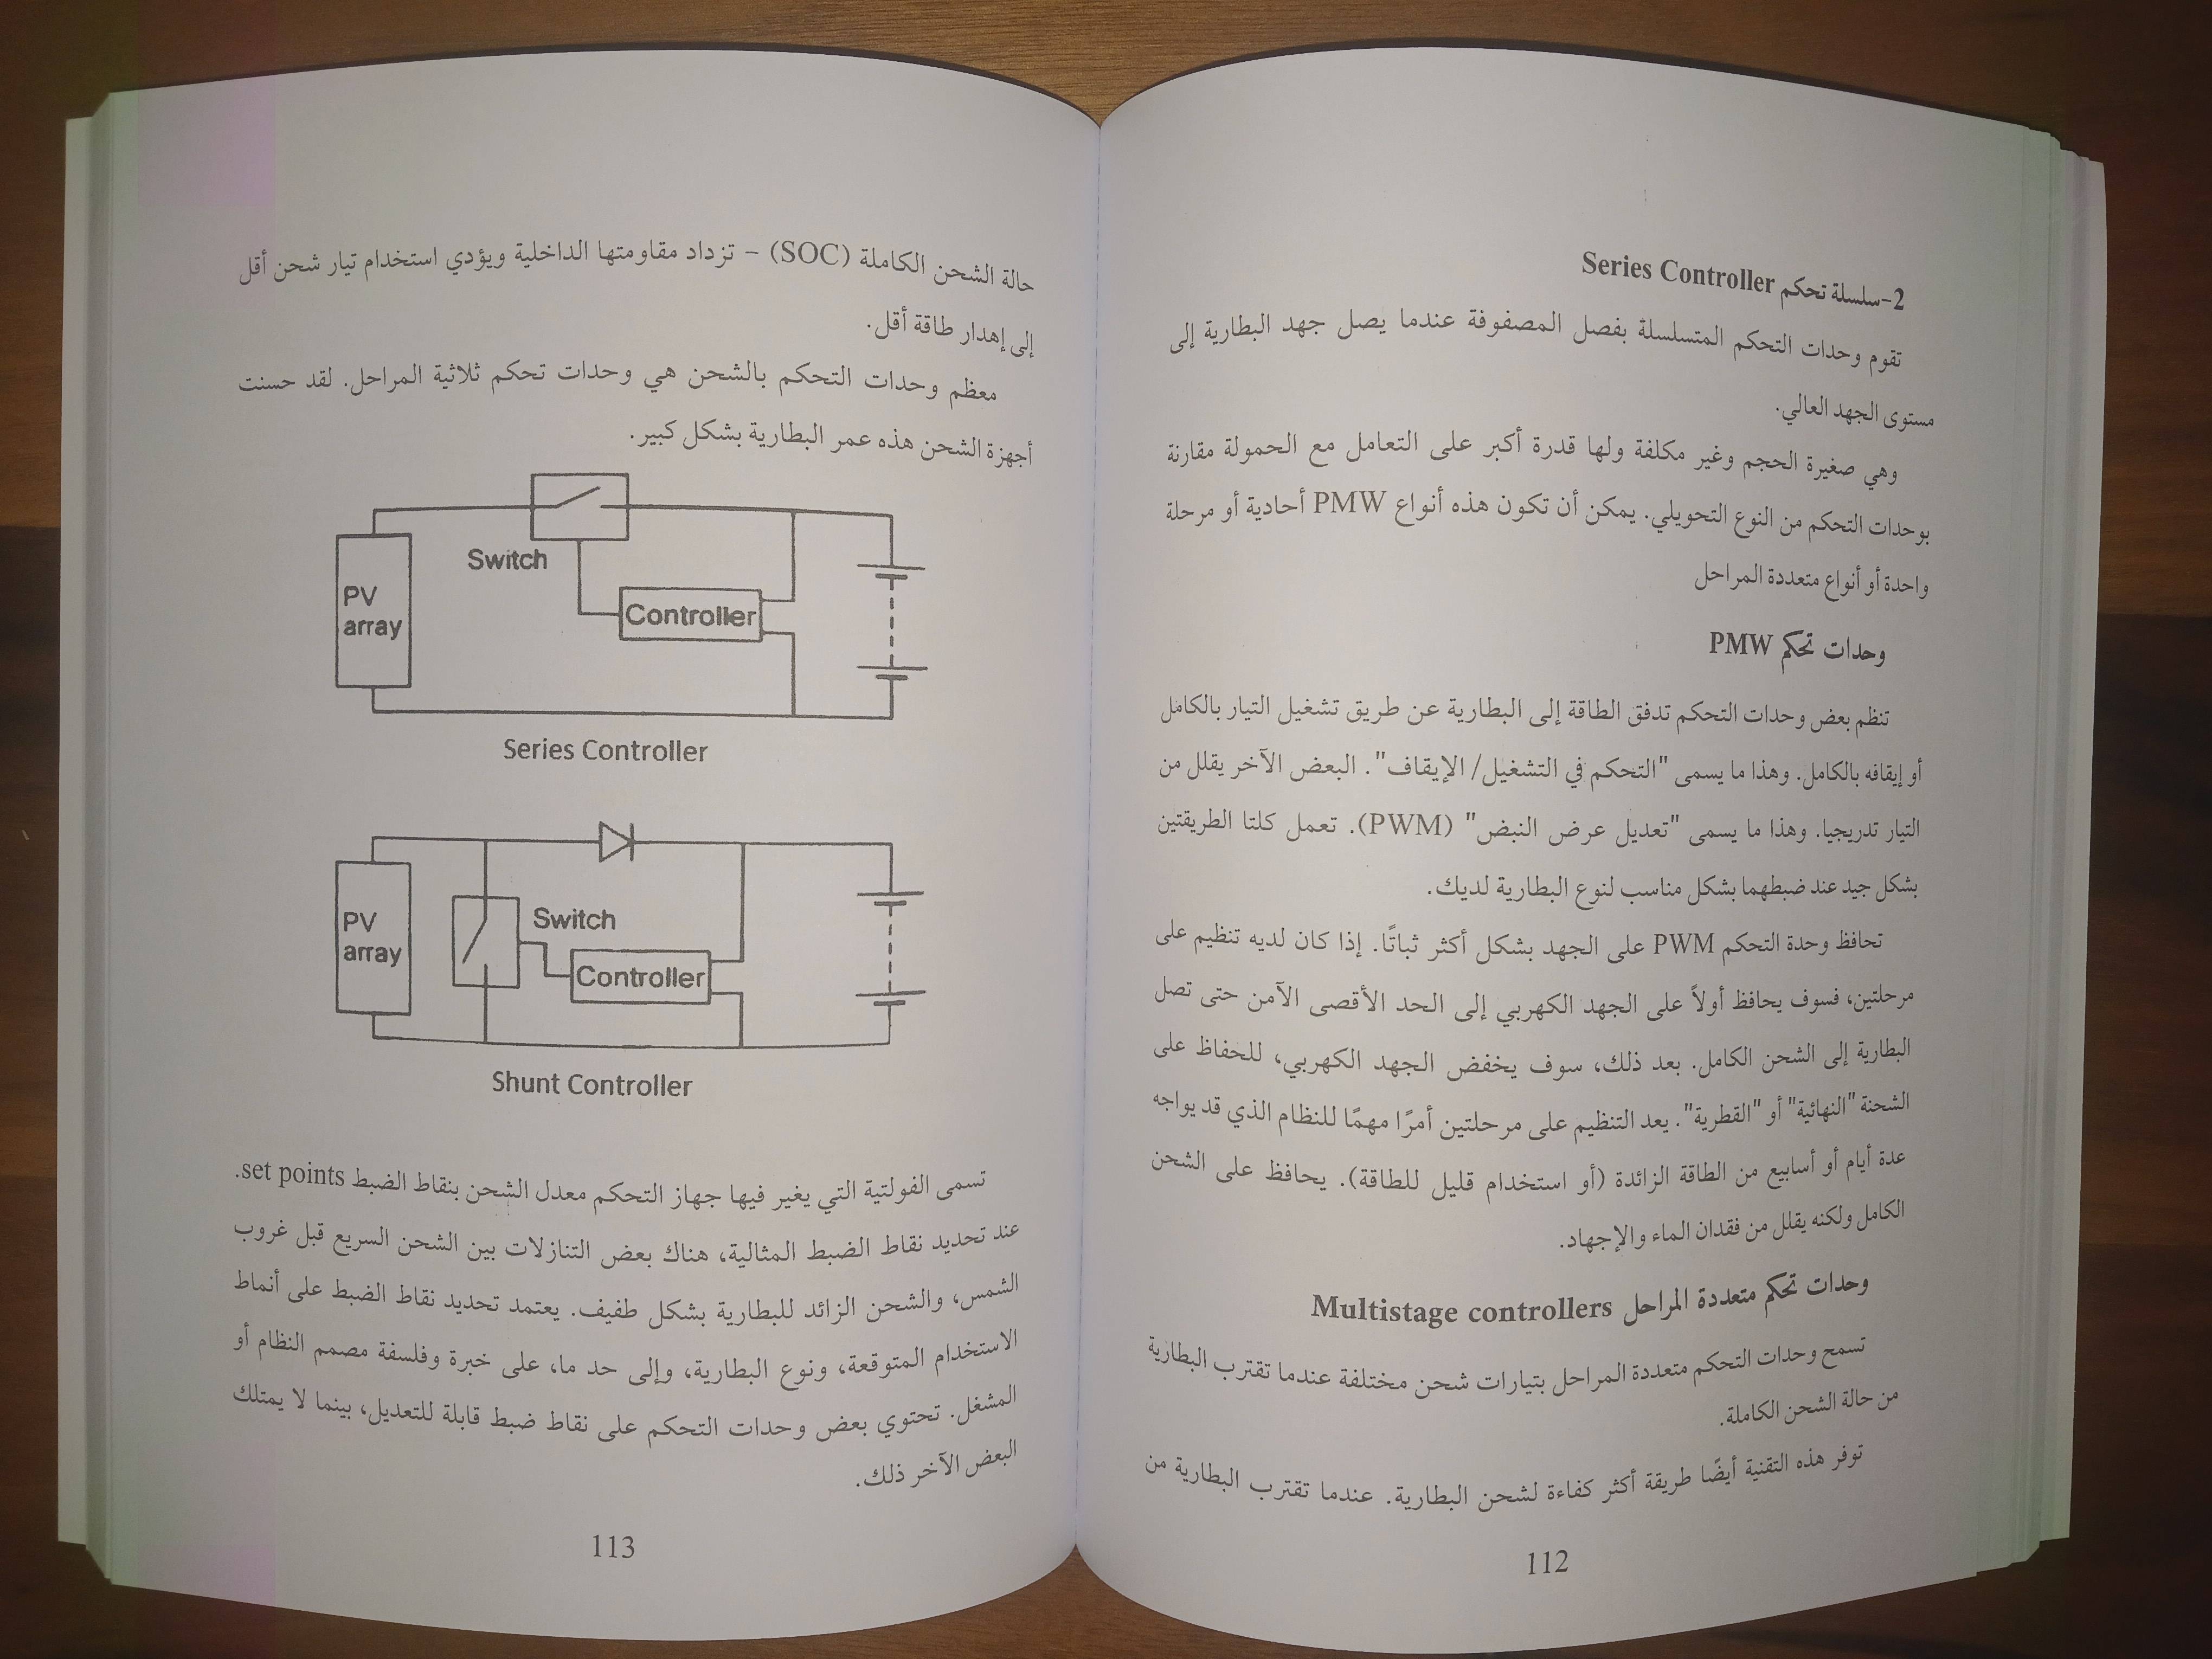 2-سلسلة تحكم Series Controller
تقوم وحدات التحكم المتسلسلة بفصل المصفوفة عندما يصل جهد البطارية إلى
مستوى الجهد العالي.
وهي صغيرة الحجم وغير مكلفة ولها قدرة أكبر على التعامل مع الحمولة مقارنة
بوحدات التحكم من النوع التحويلي. يمكن أن تكون هذه أنواع PMW أحادية أو مرحلة
واحدة أو أنواع متعددة المراحل
وحدات تحكم PMW
تنظم بعض وحدات التحكم تدفق الطاقة إلى البطارية عن طريق تشغيل التيار بالكامل
أو إيقافه بالكامل. وهذا ما يسمى "التحكم في التشغيل/ الإيقاف". البعض الآخر يقلل من
التيار تدريجيا. وهذا ما يسمى "تعديل عرض النبض" (PWM). تعمل كلتا الطريقتين
بشكل جيد عند ضبطهما بشكل مناسب لنوع البطارية لديك.
تحافظ وحدة التحكم PWM على الجهد بشكل أكثر ثباتًا. إذا كان لديه تنظيم على
مرحلتين، فسوف يحافظ أولاً على الجهد الكهربي إلى الحد الأقصى الآمن حتى تصل
البطارية إلى الشحن الكامل. بعد ذلك، سوف يخفض الجهد الكهربي، للحفاظ على
الشحنة "النهائية" أو "القطرية". يعد التنظيم على مرحلتين أمرًا مهمًا للنظام الذي قد يواجه
عدة أيام أو أسابيع من الطاقة الزائدة (أو استخدام قليل للطاقة). يحافظ على الشحن
الكامل ولكنه يقلل من فقدان الماء والإجهاد.
وحدات تحكم متعددة المراحل Multistage controllers
تسمح وحدات التحكم متعددة المراحل بتيارات شحن مختلفة عندما تقترب البطارية
من حالة الشحن الكاملة.
توفر هذه التقنية أيضًا طريقة أكثر كفاءة لشحن البطارية. عندما تقترب البطارية من
112
حالة الشحن الكاملة (SOC) – تزداد مقاومتها الداخلية ويؤدي استخدام تيار شحن أقل
إلى إهدار طاقة أقل.
معظم وحدات التحكم بالشحن هي وحدات تحكم ثلاثية المراحل. لقد حسنت
أجهزة الشحن هذه عمر البطارية بشكل كبير.
Switch
PV
array
Controller
Series Controller
PV
array
Switch
Controller
Shunt Controller
تسمى الفولتية التي يغير فيها جهاز التحكم معدل الشحن بنقاط الضبط set points.
عند تحديد نقاط الضبط المثالية، هناك بعض التنازلات بين الشحن السريع قبل غروب
الشمس، والشحن الزائد للبطارية بشكل طفيف. يعتمد تحديد نقاط الضبط على أنماط
الاستخدام المتوقعة، ونوع البطارية، وإلى حد ما، على خبرة وفلسفة مصمم النظام أو
المشغل. تحتوي بعض وحدات التحكم على نقاط ضبط قابلة للتعديل، بينما لا يمتلك
البعض الآخر ذلك.
113